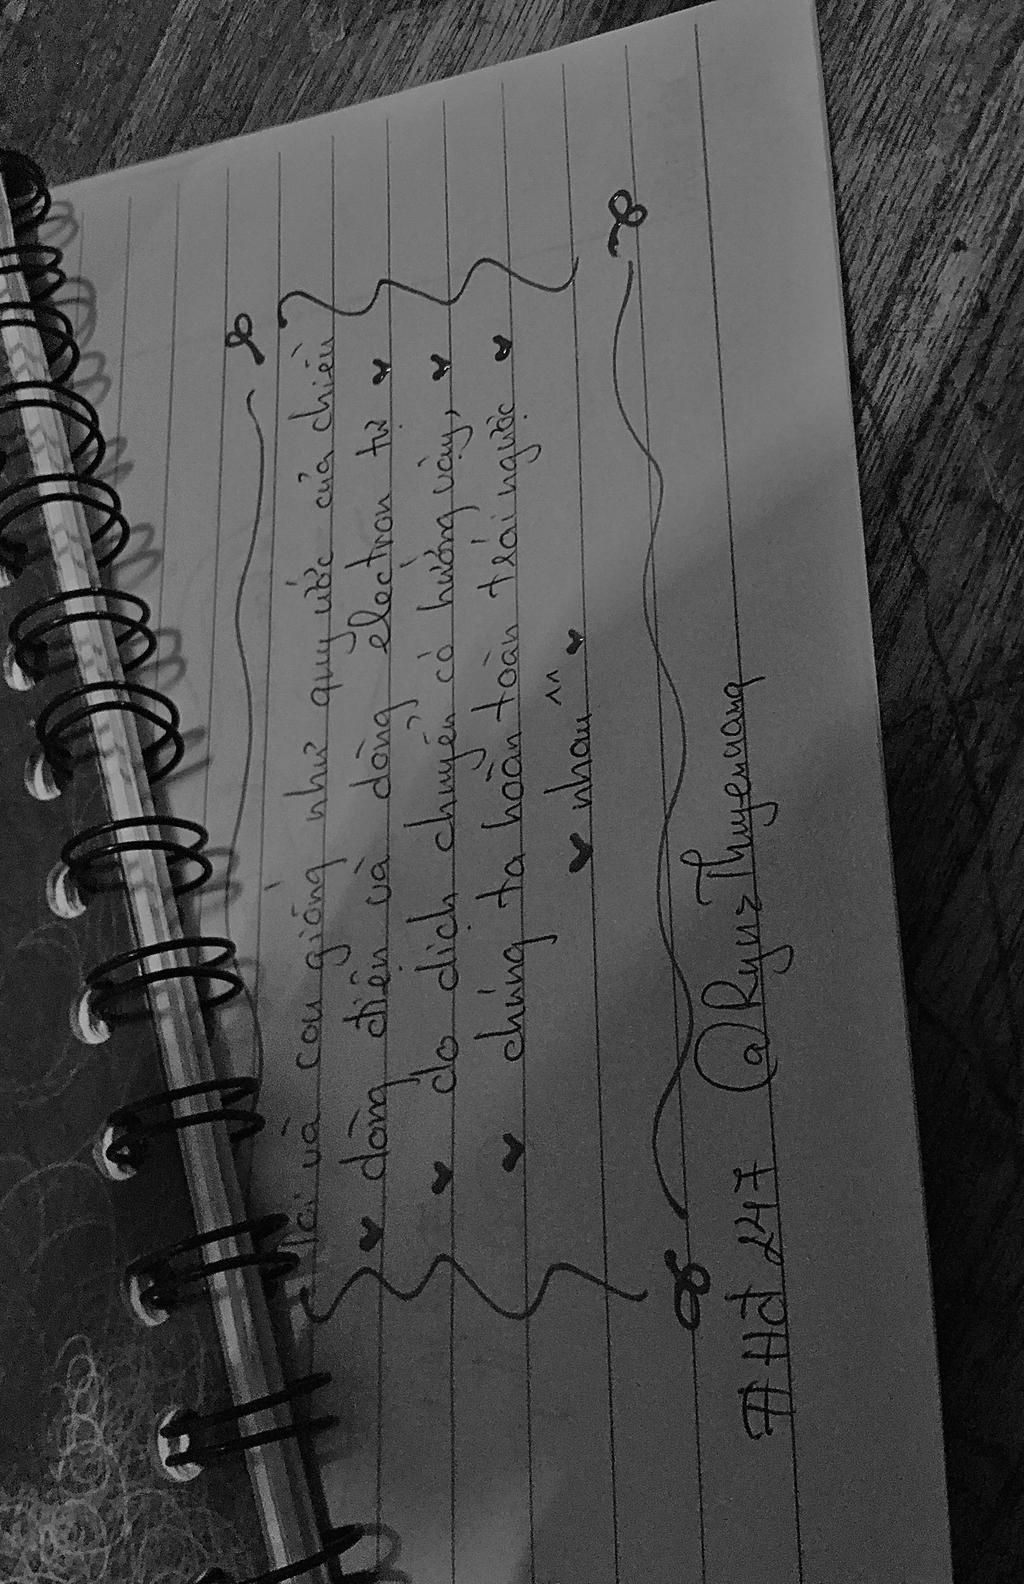 Tôi và cậu giống như quy ước của chiều
dòng điện và dòng electron tự
do dịch chuyển có hướng vậy,
chúng ta hoàn toàn trái ngược
nhau ^^
#Hđ 247 @RynzThuyenang